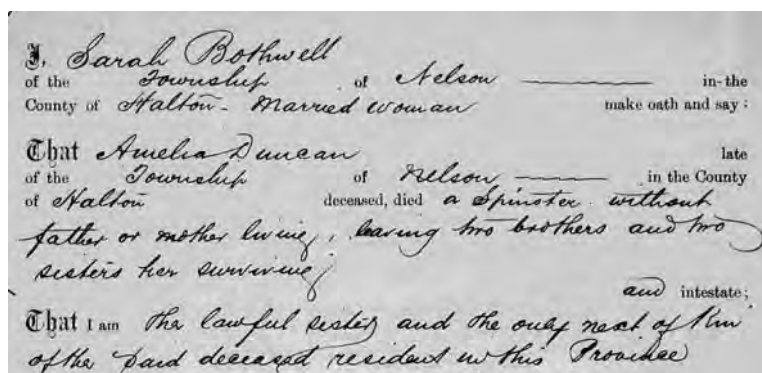 I, Sarah Bothwell
of the Township of Nelson in the
County of Halton - Married woman make oath and say:
That Amelia Duncan late
of the Township of Nelson in the County
of Halton deceased, died a Spinster without
father or mother living, leaving two brothers and two
sisters her surviving
and intestate;
That I am the lawful sister and the only next of Kin
of the said deceased resident in this Province